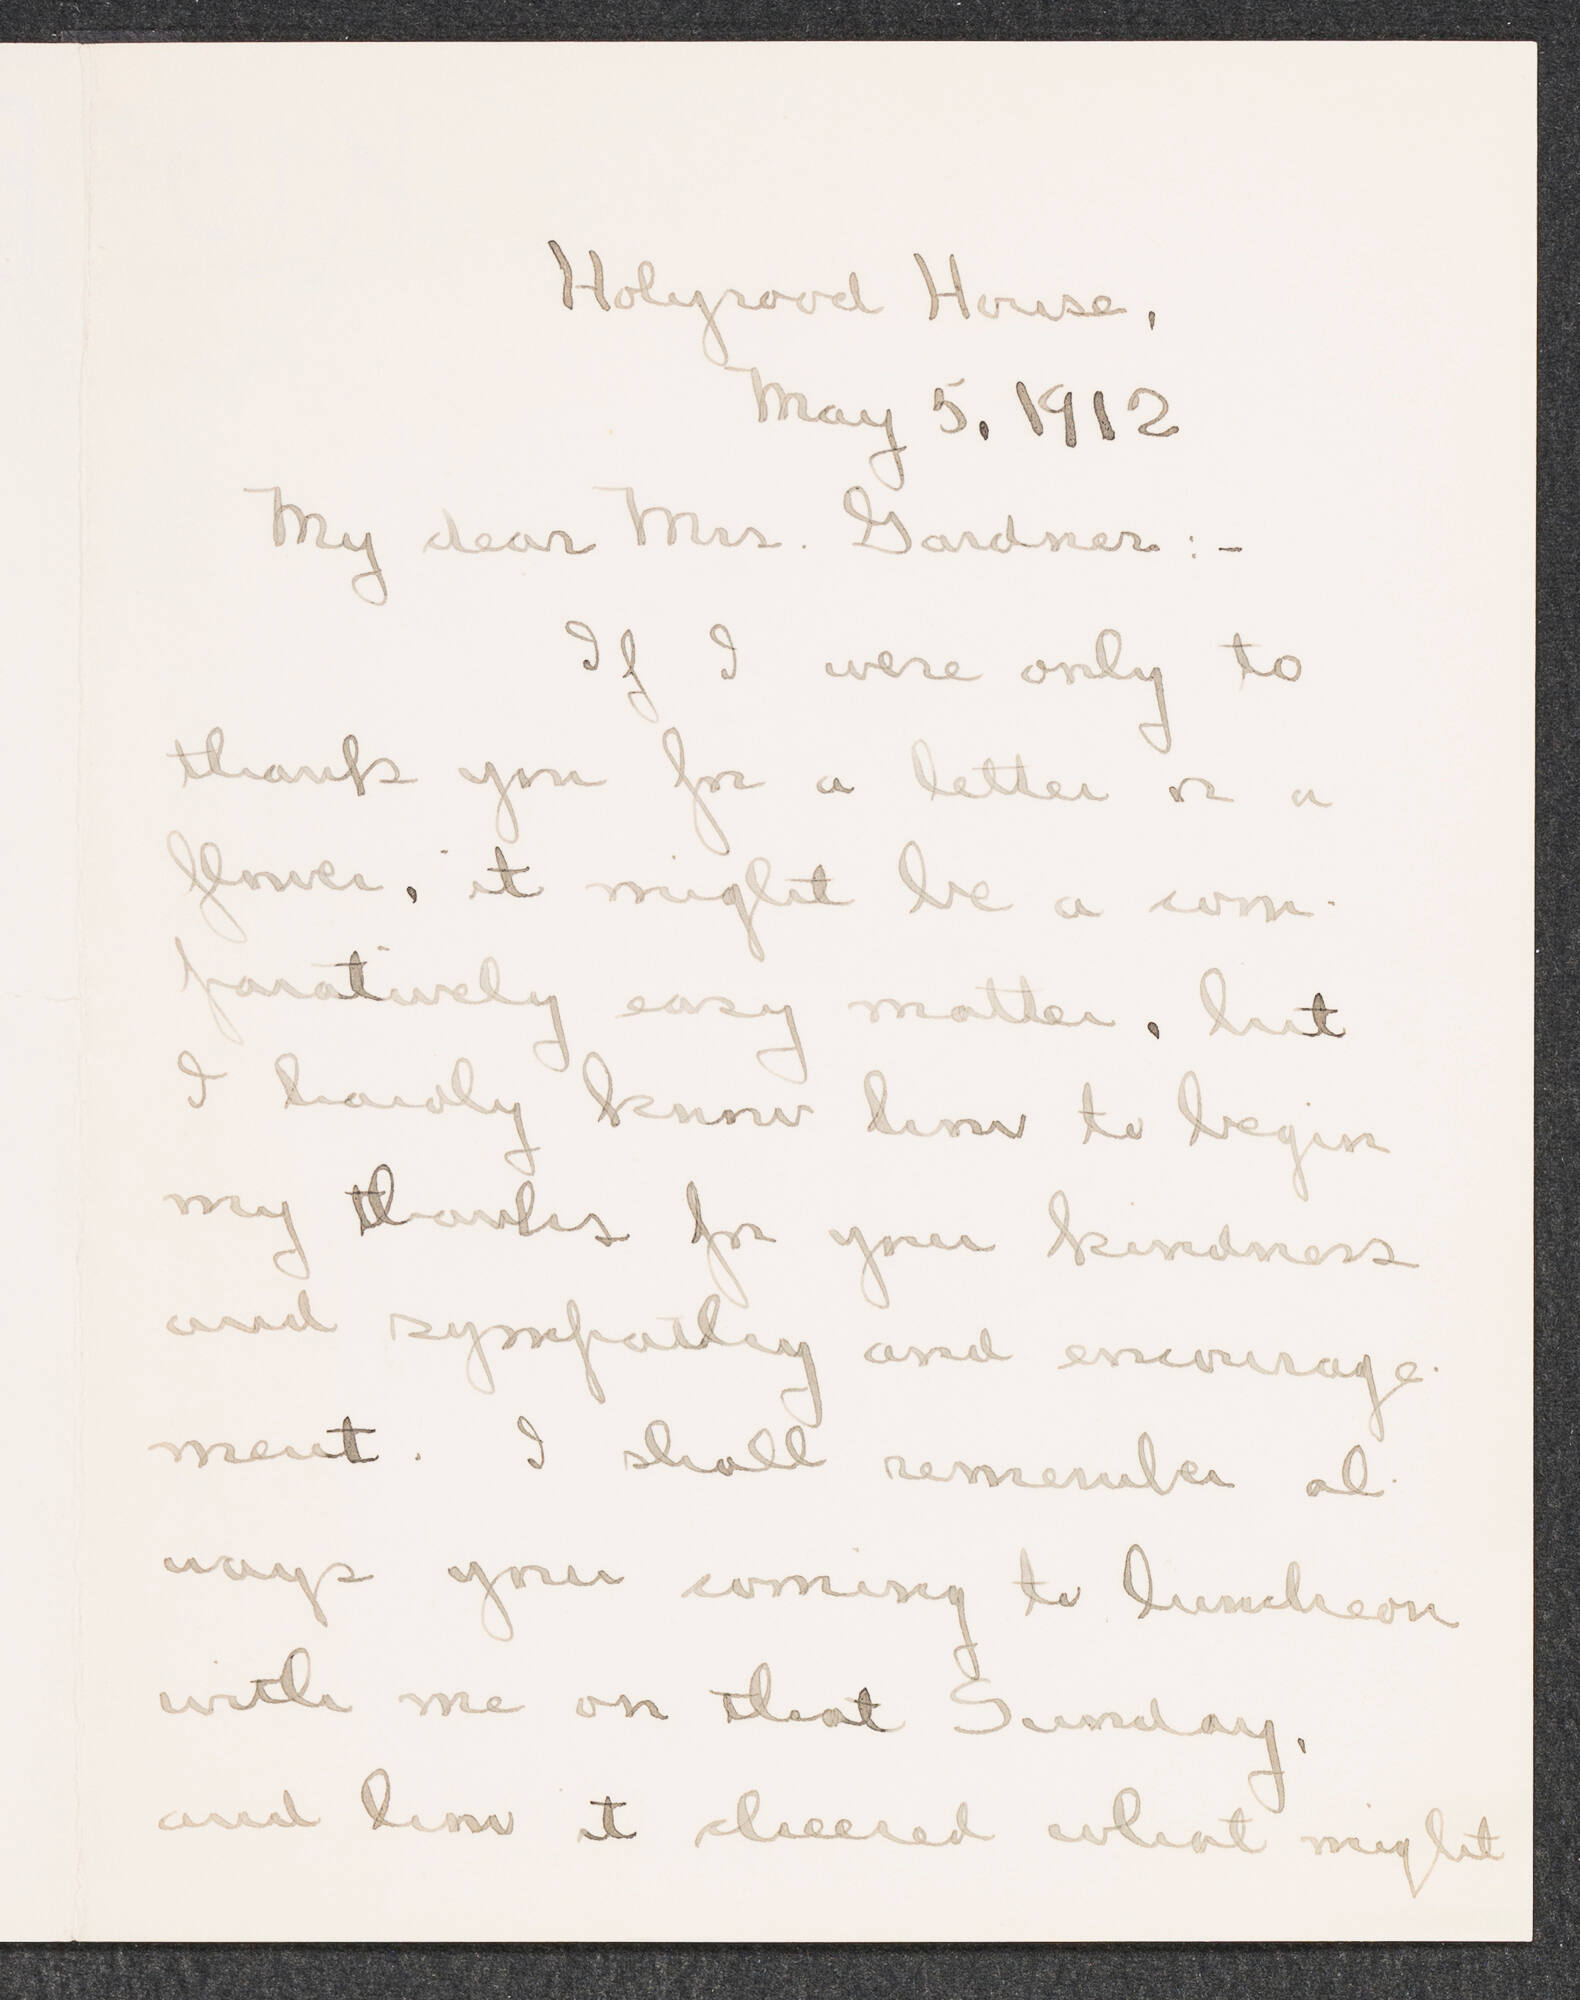 Holyrood House,
May 5, 1912
My dear Mrs. Gardner:-
If I were only to
thank you for a letter or a
flower, it might be a com-
paratively easy matter, but
I hardly know how to begin
my thanks for your kindness
and sympathy and encourage-
ment. I shall remember al-
ways your coming to luncheon
with me on that Sunday,
and how it cheered what might